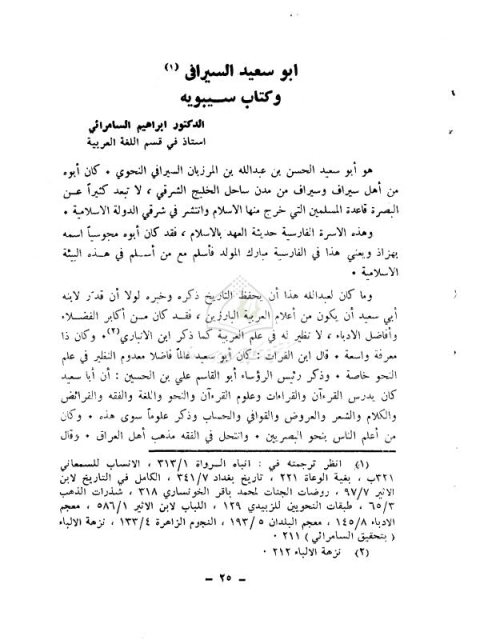 ابو سعيد السيرافى (١)
وكتاب سـيبويه
الدكتور ابراهيم السامرائي
استاذ في قسم اللغة العربية
هو أبو سعيد الحسن بن عبدالله بن المرزبان السيرافي النحوي ٠ كان أبوه
من أهل سيراف وسيراف من مدن ساحل الخليج الشرقي ، لا تبعد كثيراً عـن
البصرة قاعدة المسلمين التي خرج منها الاسلام وانتشر في شرقي الدولة الاسلامية ٠
وهذه الاسرة الفارسية حديثة العهد بالاسلام ، فقد كان أبوه مجوسياً اسمه
بهزاذ ويعني هذا في الفارسية مبارك المولد فأسلم مع من أسـلم في هـذه البيئة
الاسلامية ٠
وما كان لعبدالله هذا أن يحفظ التاريخ ذكره وخبره لولا أن قدّر لابنه
أبي سعيد أن يكون من أعلام العربية البارزين ، فقـد كان مـن أكابر الفضـلاء
وأفاضل الادباء ، لا نظير له في علم العربية كما ذكر ابن الانباري(٢)٠ وكان ذا
معرفة واسعة ٠ قال ابن الفرات : كان أبو سعيد عالماً فاضلا معدوم النظير في علم
النحو خاصة ٠ وذكر رئيس الرؤساء أبو القاسم علي بن الحسين : أن أبا سعيد
كان يدرس القرءآن والقراءات وعلوم القرءآن والنحو واللغة والفقه والفرائض
والكلام والشعر والعروض والقوافي والحساب وذكر علوماً سوى هذه ٠ وكان
من أعلم الناس بنحو البصريين ٠ وانتحل في الفقه مذهب أهل العراق ٠ وقال
(١) انظر ترجمته في : انباه الرواة ٣١٣/١ ، الانساب للسمعاني
٣٢١ب ، بغية الوعاة ٢٢١ ، تاريخ بغداد ٣٤١/٧ ، الكامل في التاريخ لابن
الاثير ٩٧/٧ ، روضات الجنات لمحمد باقر الخونساري ٣١٨ ، شذرات الذهب
٦٥/٣ ، طبقات النحويين للزبيدي ١٢٩ ، اللباب لابن الاثير ٥٨٦/١ ، معجم
الادباء ١٤٥/٨ ، معجم البلدان ١٩٣/٥ ، النجوم الزاهرة ١٣٣/٤ ، نزهة الالباء
( بتحقيق السامرائي ) ٢١١ ٠
(٢) نزهة الالباء ٢١٢ ٠
– ٢٥ –